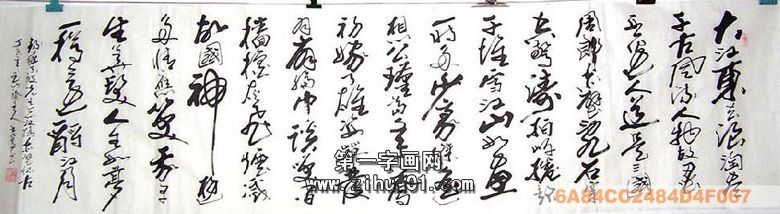 大江東去浪淘尽
千古風流人物故壘
西邊人道是三國
周郎赤壁亂石穿
空驚濤拍岸捲起
千堆雪江山如畫
一時多少豪傑遙
想公瑾當年小喬
初嫁了雄姿英發
羽扇綸巾談笑間
檣櫓灰飛煙滅
故國神遊
多情應笑我早
生華髮人生如夢
一樽還酹江月
第一字画网
www.zihua01.com
6A84CC2484D4F067